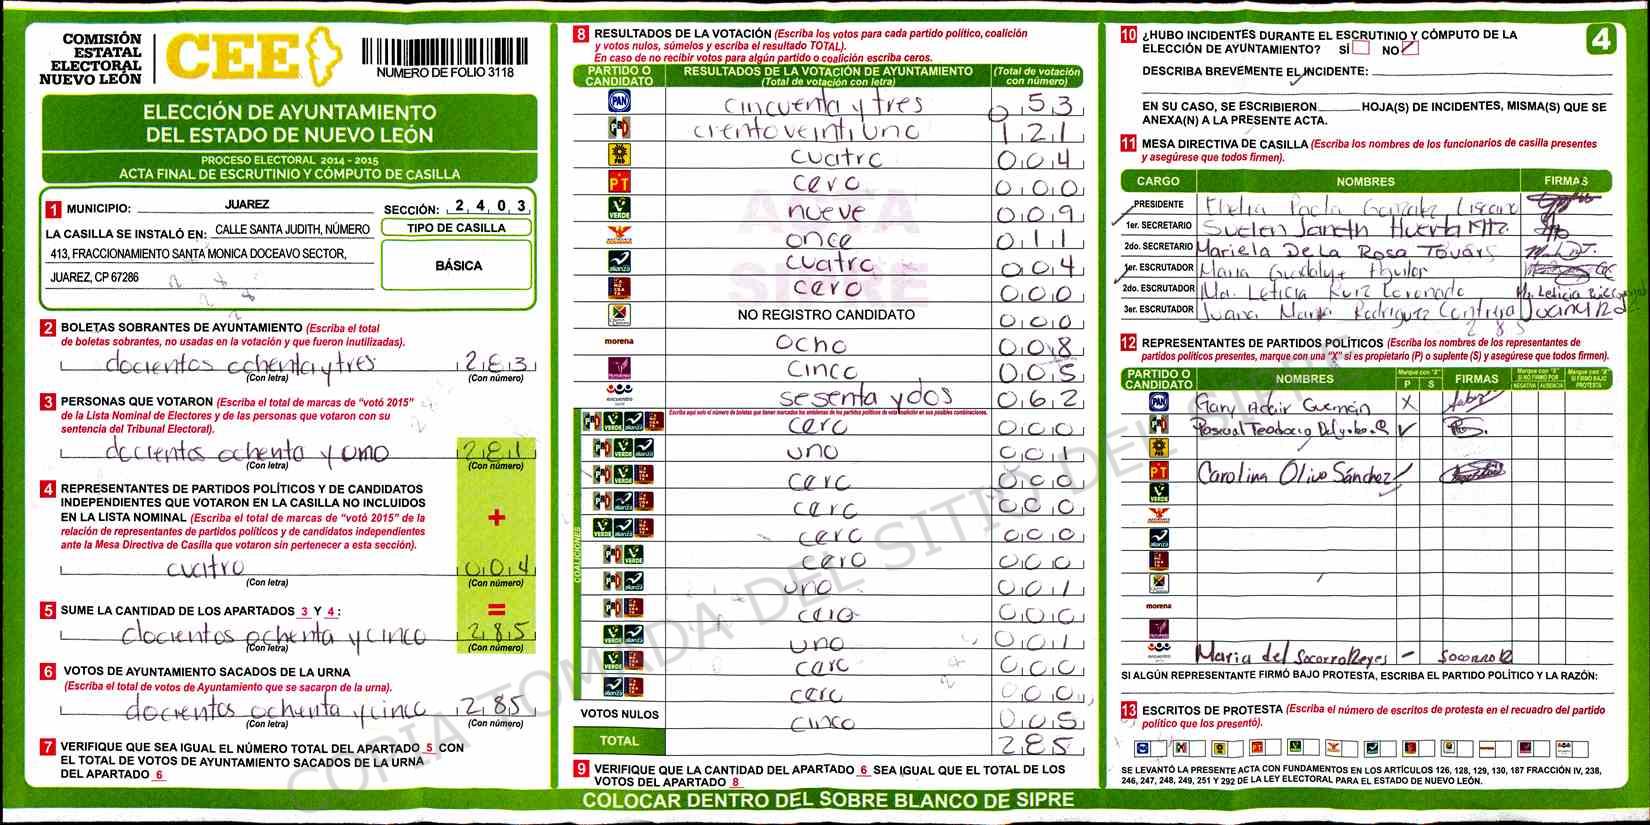 COMISIÓN
ESTATAL
ELECTORAL
NUEVO LEÓN
CEE
NUMERO DE FOLIO 3118
ELECCIÓN DE AYUNTAMIENTO
DEL ESTADO DE NUEVO LEÓN
PROCESO ELECTORAL 2014 - 2015
ACTA FINAL DE ESCRUTINIO Y CÓMPUTO DE CASILLA
1 MUNICIPIO: JUAREZ SECCIÓN: 2 4 0 3
LA CASILLA SE INSTALÓ EN: CALLE SANTA JUDITH, NÚMERO
413, FRACCIONAMIENTO SANTA MONICA DOCEAVO SECTOR,
JUAREZ, CP 67286
TIPO DE CASILLA
BÁSICA
2 BOLETAS SOBRANTES DE AYUNTAMIENTO (Escriba el total
de boletas sobrantes, no usadas en la votación y que fueron inutilizadas).
docientos ochenta y tres 2 8 3
(Con letra) (Con número)
3 PERSONAS QUE VOTARON (Escriba el total de marcas de "votó 2015"
de la Lista Nominal de Electores y de las personas que votaron con su
sentencia del Tribunal Electoral).
docientos ochenta y uno 2 8 1
(Con letra) (Con número)
4 REPRESENTANTES DE PARTIDOS POLÍTICOS Y DE CANDIDATOS
INDEPENDIENTES QUE VOTARON EN LA CASILLA NO INCLUIDOS
EN LA LISTA NOMINAL (Escriba el total de marcas de "votó 2015" de la
relación de representantes de partidos políticos y de candidatos independientes
ante la Mesa Directiva de Casilla que votaron sin pertenecer a esta sección).
+
cuatro 0 0 4
(Con letra) (Con número)
5 SUME LA CANTIDAD DE LOS APARTADOS 3 Y 4 : =
docientos ochenta y cinco 2 8 5
(Con letra) (Con número)
6 VOTOS DE AYUNTAMIENTO SACADOS DE LA URNA
(Escriba el total de votos de Ayuntamiento que se sacaron de la urna).
docientos ochenta y cinco 2 8 5
(Con letra) (Con número)
7 VERIFIQUE QUE SEA IGUAL EL NÚMERO TOTAL DEL APARTADO 5 CON
EL TOTAL DE VOTOS DE AYUNTAMIENTO SACADOS DE LA URNA
DEL APARTADO 6
8 RESULTADOS DE LA VOTACIÓN (Escriba los votos para cada partido político, coalición
y votos nulos, súmelos y escriba el resultado TOTAL).
En caso de no recibir votos para algún partido o coalición escriba ceros.
PARTIDO O CANDIDATO RESULTADOS DE LA VOTACIÓN DE AYUNTAMIENTO (Total de votación con letra) (Total de votación con número)
PAN cincuenta y tres 0 5 3
PRD ciento veinti uno 1 2 1
PRD cuatro 0 0 4
PT cero 0 0 0
VERDE nueve 0 0 9
once 0 1 1
alianza cuatro 0 0 4
cero 0 0 0
NO REGISTRO CANDIDATO 0 0 0
morena ocho 0 0 8
Humanista cinco 0 0 5
encuentro sesenta y dos 0 6 2
COALICIONES
Escriba aquí solo el número de boletas que tienen marcados los emblemas de los partidos políticos de esta coalición en sus posibles combinaciones.
cero 0 0 0
uno 0 0 1
cero 0 0 0
cero 0 0 0
cero 0 0 0
cero 0 0 0
uno 0 0 1
cero 0 0 0
uno 0 0 1
cero 0 0 0
cero 0 0 0
VOTOS NULOS cinco 0 0 5
TOTAL 2 8 5
9 VERIFIQUE QUE LA CANTIDAD DEL APARTADO 6 SEA IGUAL QUE EL TOTAL DE LOS
VOTOS DEL APARTADO 8
COLOCAR DENTRO DEL SOBRE BLANCO DE SIPRE
ACTA
SIPRE
COPIA TOMADA DEL SITIO DEL SIPRE
10 ¿HUBO INCIDENTES DURANTE EL ESCRUTINIO Y CÓMPUTO DE LA
ELECCIÓN DE AYUNTAMIENTO? SÍ NO
4
DESCRIBA BREVEMENTE EL INCIDENTE:
EN SU CASO, SE ESCRIBIERON HOJA(S) DE INCIDENTES, MISMA(S) QUE SE
ANEXA(N) A LA PRESENTE ACTA.
11 MESA DIRECTIVA DE CASILLA (Escriba los nombres de los funcionarios de casilla presentes
y asegúrese que todos firmen).
CARGO NOMBRES FIRMAS
PRESIDENTE Paola Gonzalez
1er. SECRETARIO Suelen Janeth Huerta Mtz.
2do. SECRETARIO Mariela De La Rosa Tovar
1er. ESCRUTADOR Maria Guadalupe Aguilar
2do. ESCRUTADOR Ma. Leticia Ruiz Coronado Ma. Leticia Ruiz
3er. ESCRUTADOR Juana Maria Rodriguez Contreras Juana
2 8 5
12 REPRESENTANTES DE PARTIDOS POLÍTICOS (Escriba los nombres de los representantes de
partidos políticos presentes, marque con una "X" si es propietario (P) o suplente (S) y asegúrese que todos firmen).
PARTIDO O CANDIDATO NOMBRES Marque con "X" P S FIRMAS Marque con "X" SI NO FIRMÓ POR NEGATIVA AUSENCIA Marque con "X" SI FIRMÓ BAJO PROTESTA
PAN Adair Guzmán X
Pascual Teodocio
PRD
PT Carolina Olivo Sánchez
VERDE
morena
encuentro Maria del Socorro Reyes Socorro R
SI ALGÚN REPRESENTANTE FIRMÓ BAJO PROTESTA, ESCRIBA EL PARTIDO POLÍTICO Y LA RAZÓN:
13 ESCRITOS DE PROTESTA (Escriba el número de escritos de protesta en el recuadro del partido
político que los presentó).
SE LEVANTÓ LA PRESENTE ACTA CON FUNDAMENTOS EN LOS ARTÍCULOS 126, 128, 129, 130, 187 FRACCIÓN IV, 238,
246, 247, 248, 249, 251 Y 292 DE LA LEY ELECTORAL PARA EL ESTADO DE NUEVO LEÓN.